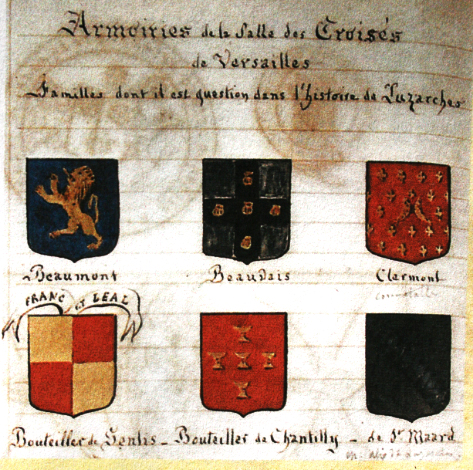 Armoiries de la Salle des Croisés
de Versailles
Familles dont il est question dans l'histoire de Luzarches
Beaumont
Beauvais
Clermont
FRANC ET LEAL
Bouteiller de Senlis - Bouteiller de Chantilly - de St Maard